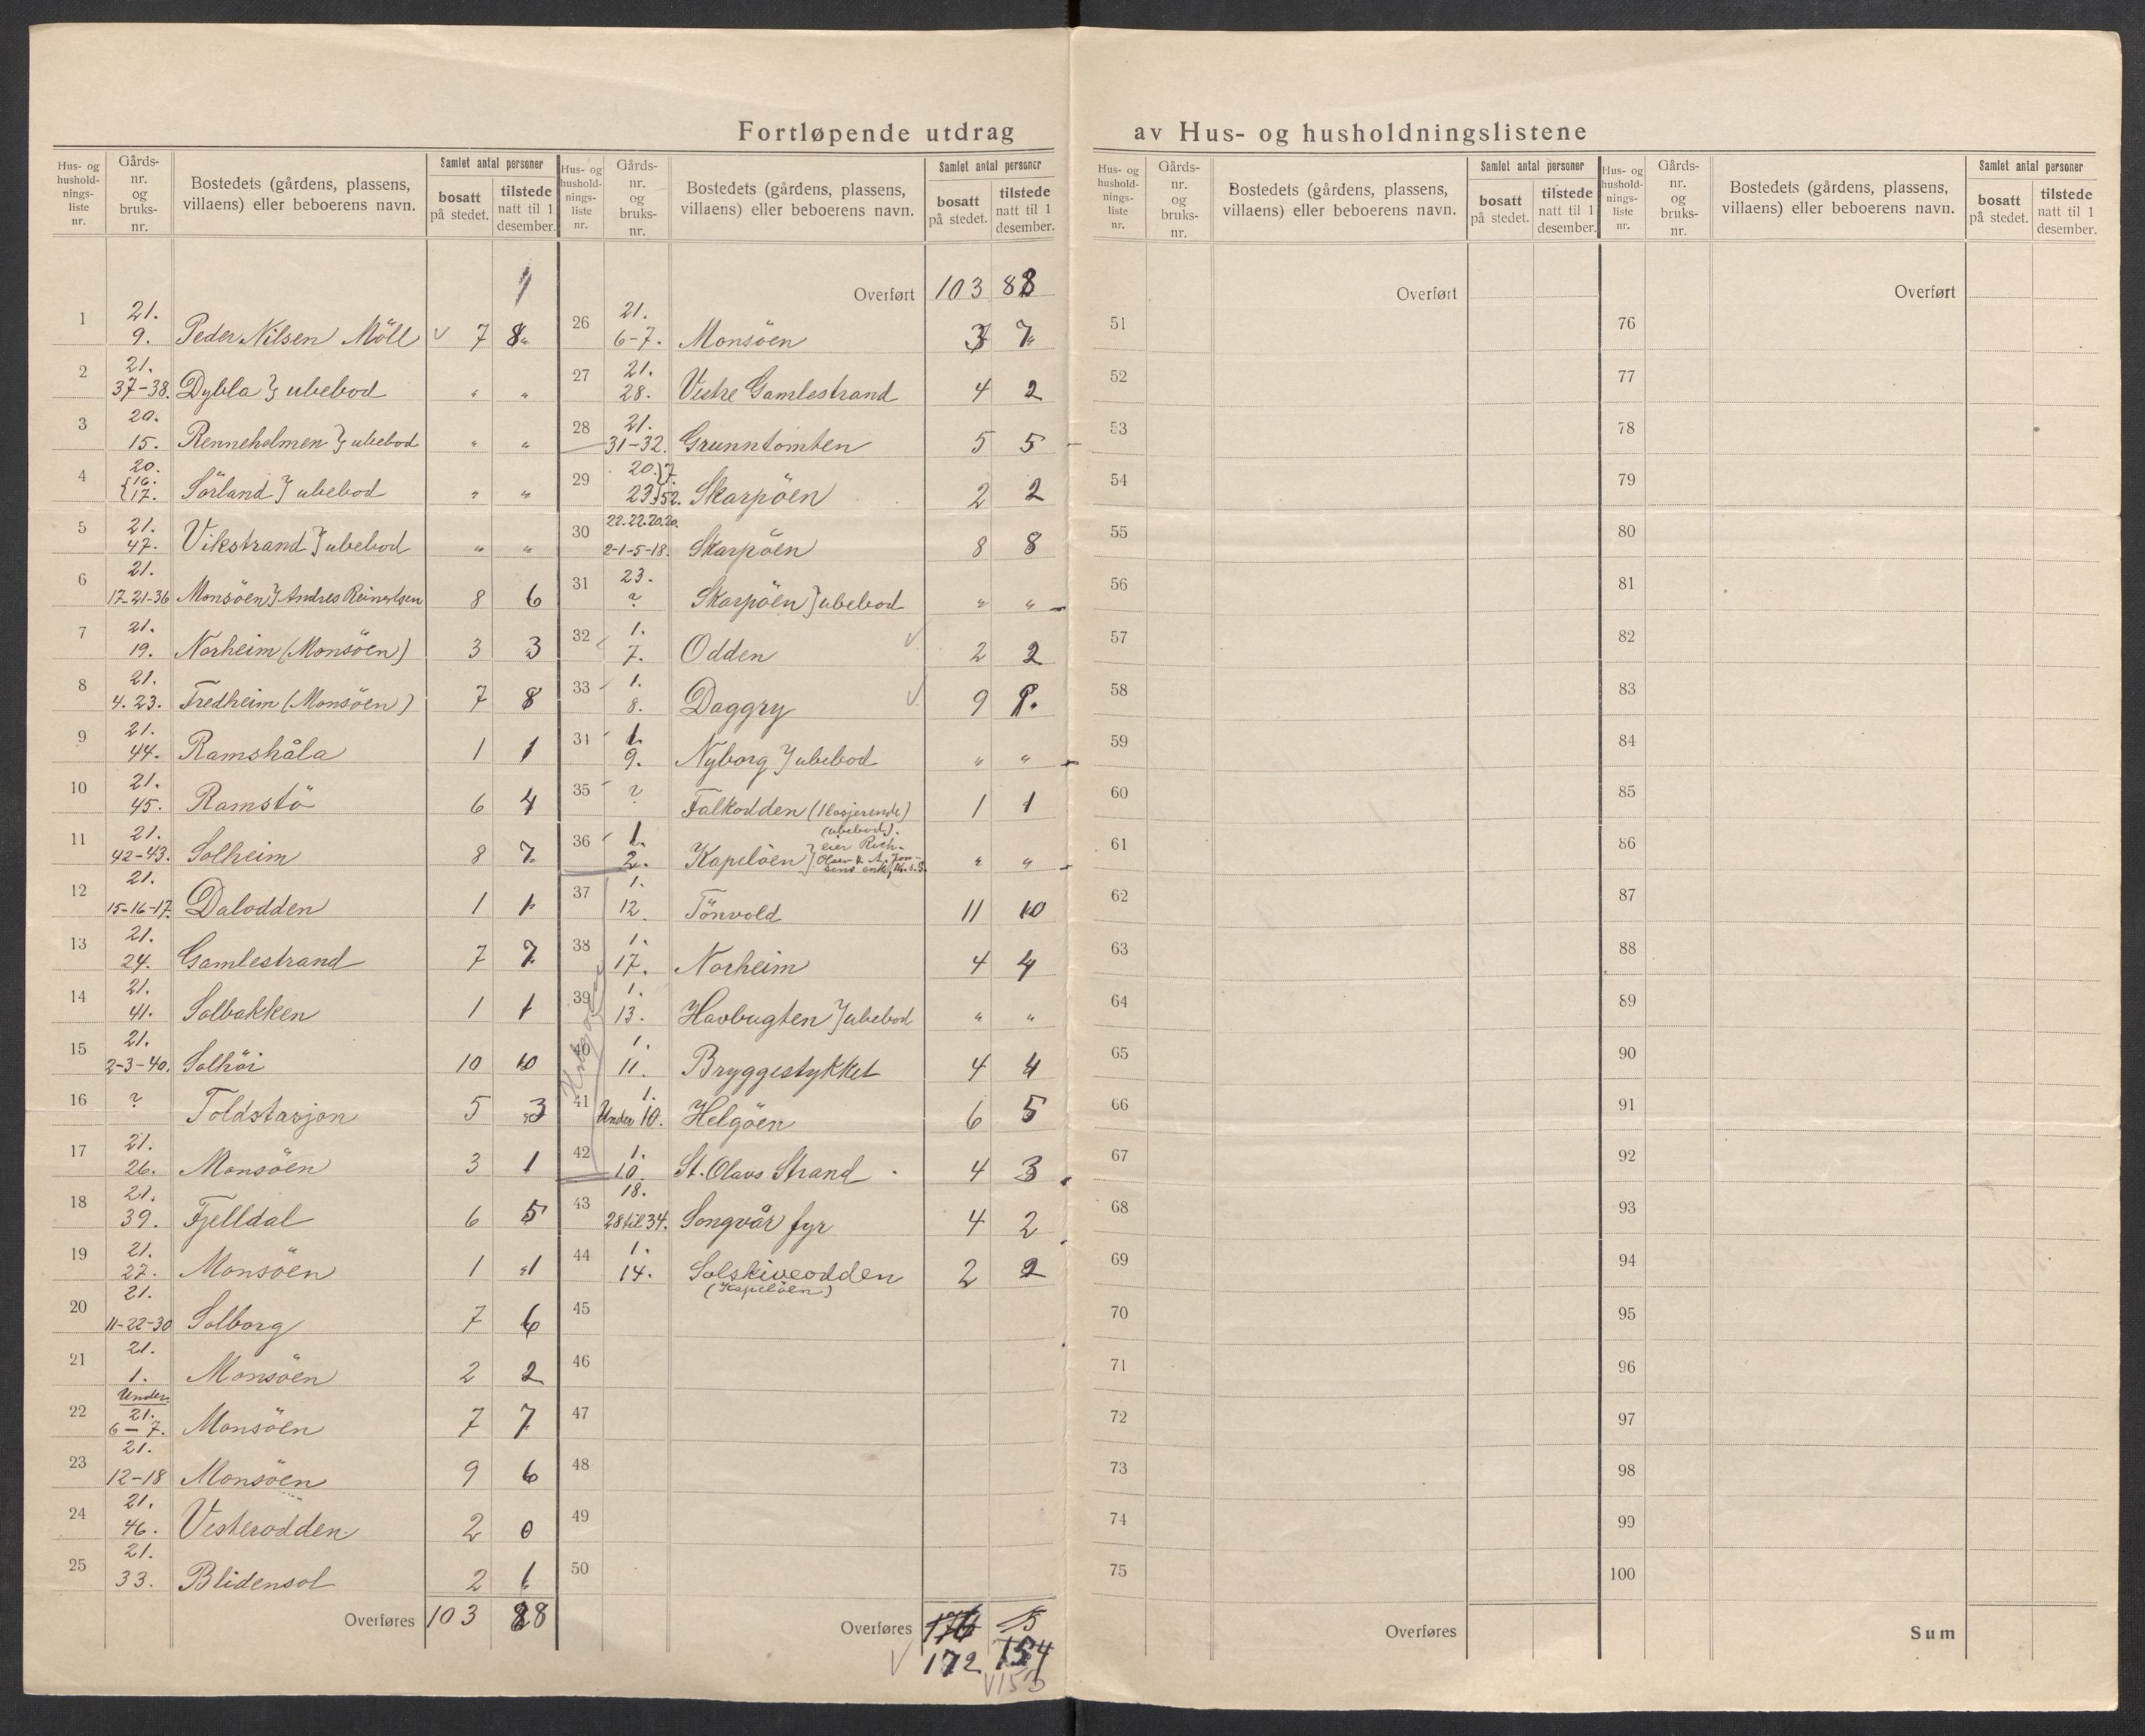 Fortløpende utdrag av Hus- og husholdningslistene
Hus- og husholdningsliste nr. Gårds-nr. og bruks-nr. Bostedets (gårdens, plassens, villaens) eller beboerens navn. Samlet antal personer bosatt på stedet. tilstede natt til 1 desember.
1 21. 9. Peder Nilsen Möll 7 8
2 21. 37-38. Dybla } ubebod " "
3 20. 15. Renneholmen } ubebod " "
4 20. {16. 17. Sörland } ubebod " "
5 21. 47. Vikstrand } ubebod " "
6 21. 17-21-36 Monsöen } Andres Reinertsen 8 6
7 21. 19. Norheim (Monsöen) 3 3
8 21. 4. 23. Fredheim (Monsöen) 7 8
9 21. 44. Ramshåla 1 1
10 21. 45. Ramstö 6 4
11 21. 42-43. Solheim 8 7
12 21. 15-16-17. Dalodden 1 1
13 21. 24. Gamlestrand 7 7
14 21. 41. Solbakken 1 1
15 21. 2-3-40. Solhöi 10 10
16 ? Toldstasjon 5 3
17 21. 26. Monsöen 3 1
18 21. 39. Fjelldal 6 5
19 21. 27. Monsöen 1 1
20 21. 11-22-30 Solborg 7 6
21 21. 1. Monsöen 2 2
22 Under 21. 6-7. Monsöen 7 7
23 21. 12-18 Monsöen 9 6
24 21. 46. Vesterodden 2 0
25 21. 33. Blidensol 2 1
Overføres 103 88
Hus- og husholdningsliste nr. Gårds-nr. og bruks-nr. Bostedets (gårdens, plassens, villaens) eller beboerens navn. Samlet antal personer bosatt på stedet. tilstede natt til 1 desember.
Overført 103 88
26 21. 6-7. Monsöen 3 7
27 21. 28. Vestre Gamlestrand 4 2
28 21. 31-32. Grunntomten 5 5
29 20.}7. 23}52. Skarpöen 2 2
30 22.22.20.20. 2-1-5-18. Skarpöen 8 8
31 23. ? Skarpöen } ubebod " "
32 1. 7. Odden 2 2
33 1. 8. Daggry 9 9.
34 1. 9. Nyborg } ubebod " "
35 ? Falkodden (losjerende) 1 1
36 1. 2. Kapelöen } (ubebod). eier Rich. Olsen " "
37 1. 12. Tönvold 11 10
38 1. 17. Norheim 4 4
39 1. 13. Havbugten } ubebod " "
40 1. 11. Bryggestykket 4 4
41 1. Under 10. Helgöen 6 5
42 1. 10. St. Olavs Strand 4 3
43 18. 28 til 34. Songvår fyr 4 2
44 1. 14. Solskiveodden 2 2
(Kapelöen)
45
46
47
48
49
50
Overføres
172 154
V153
Hus- og husholdningsliste nr. Gårds-nr. og bruks-nr. Bostedets (gårdens, plassens, villaens) eller beboerens navn. Samlet antal personer bosatt på stedet. tilstede natt til 1 desember.
Overført
51
52
53
54
55
56
57
58
59
60
61
62
63
64
65
66
67
68
69
70
71
72
73
74
75
Overføres
Hus- og husholdningsliste nr. Gårds-nr. og bruks-nr. Bostedets (gårdens, plassens, villaens) eller beboerens navn. Samlet antal personer bosatt på stedet. tilstede natt til 1 desember.
Overført
76
77
78
79
80
81
82
83
84
85
86
87
88
89
90
91
92
93
94
95
96
97
98
99
100
Sum